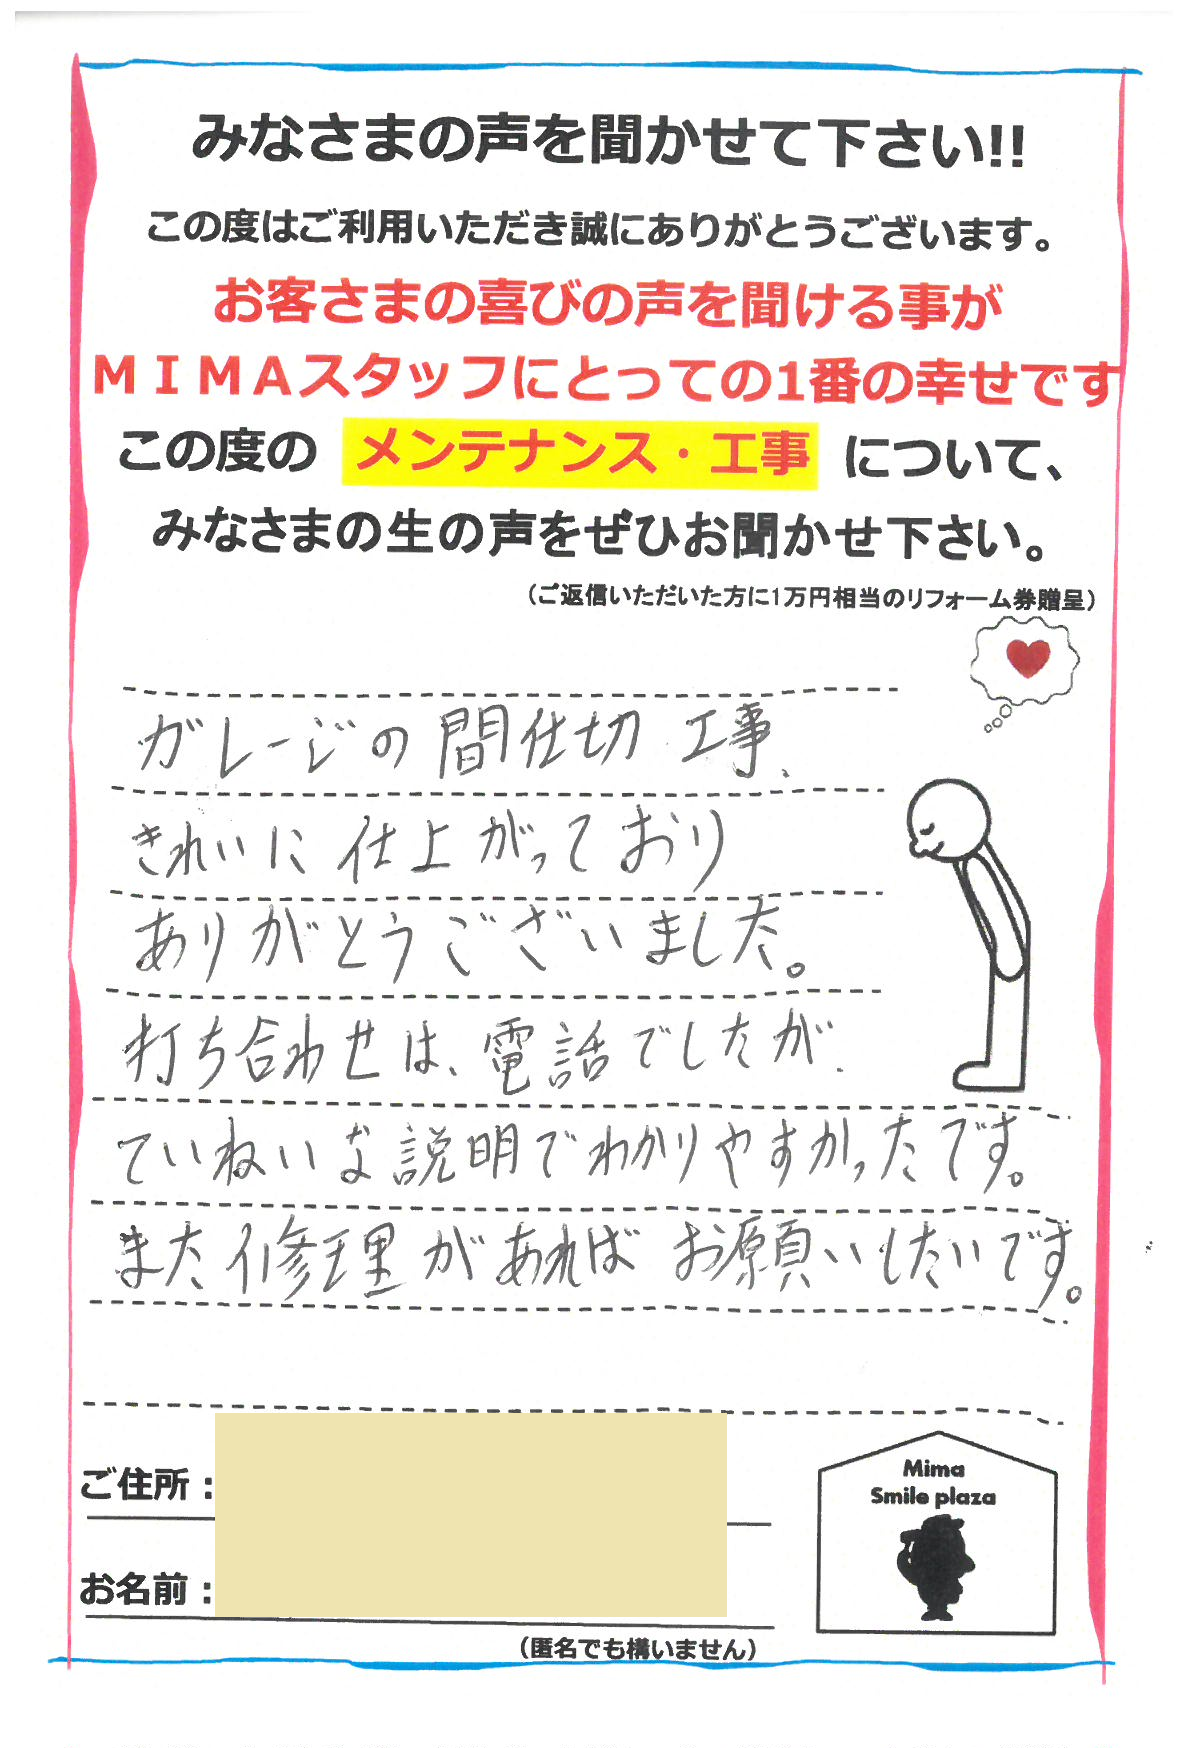 みなさまの声を聞かせて下さい!!
この度はご利用いただき誠にありがとうございます。
お客さまの喜びの声を聞ける事が
ＭＩＭＡスタッフにとっての1番の幸せです
この度の メンテナンス・工事 について、
みなさまの生の声をぜひお聞かせ下さい。
（ご返信いただいた方に1万円相当のリフォーム券贈呈）
ガレージの間仕切工事、
きれいに仕上がっており
ありがとうございました。
打ち合わせは、電話でしたが、
ていねいな説明でわかりやすかったです。
また修理があればお願いしたいです。
ご住所：
お名前：
（匿名でも構いません）
Mima
Smile plaza